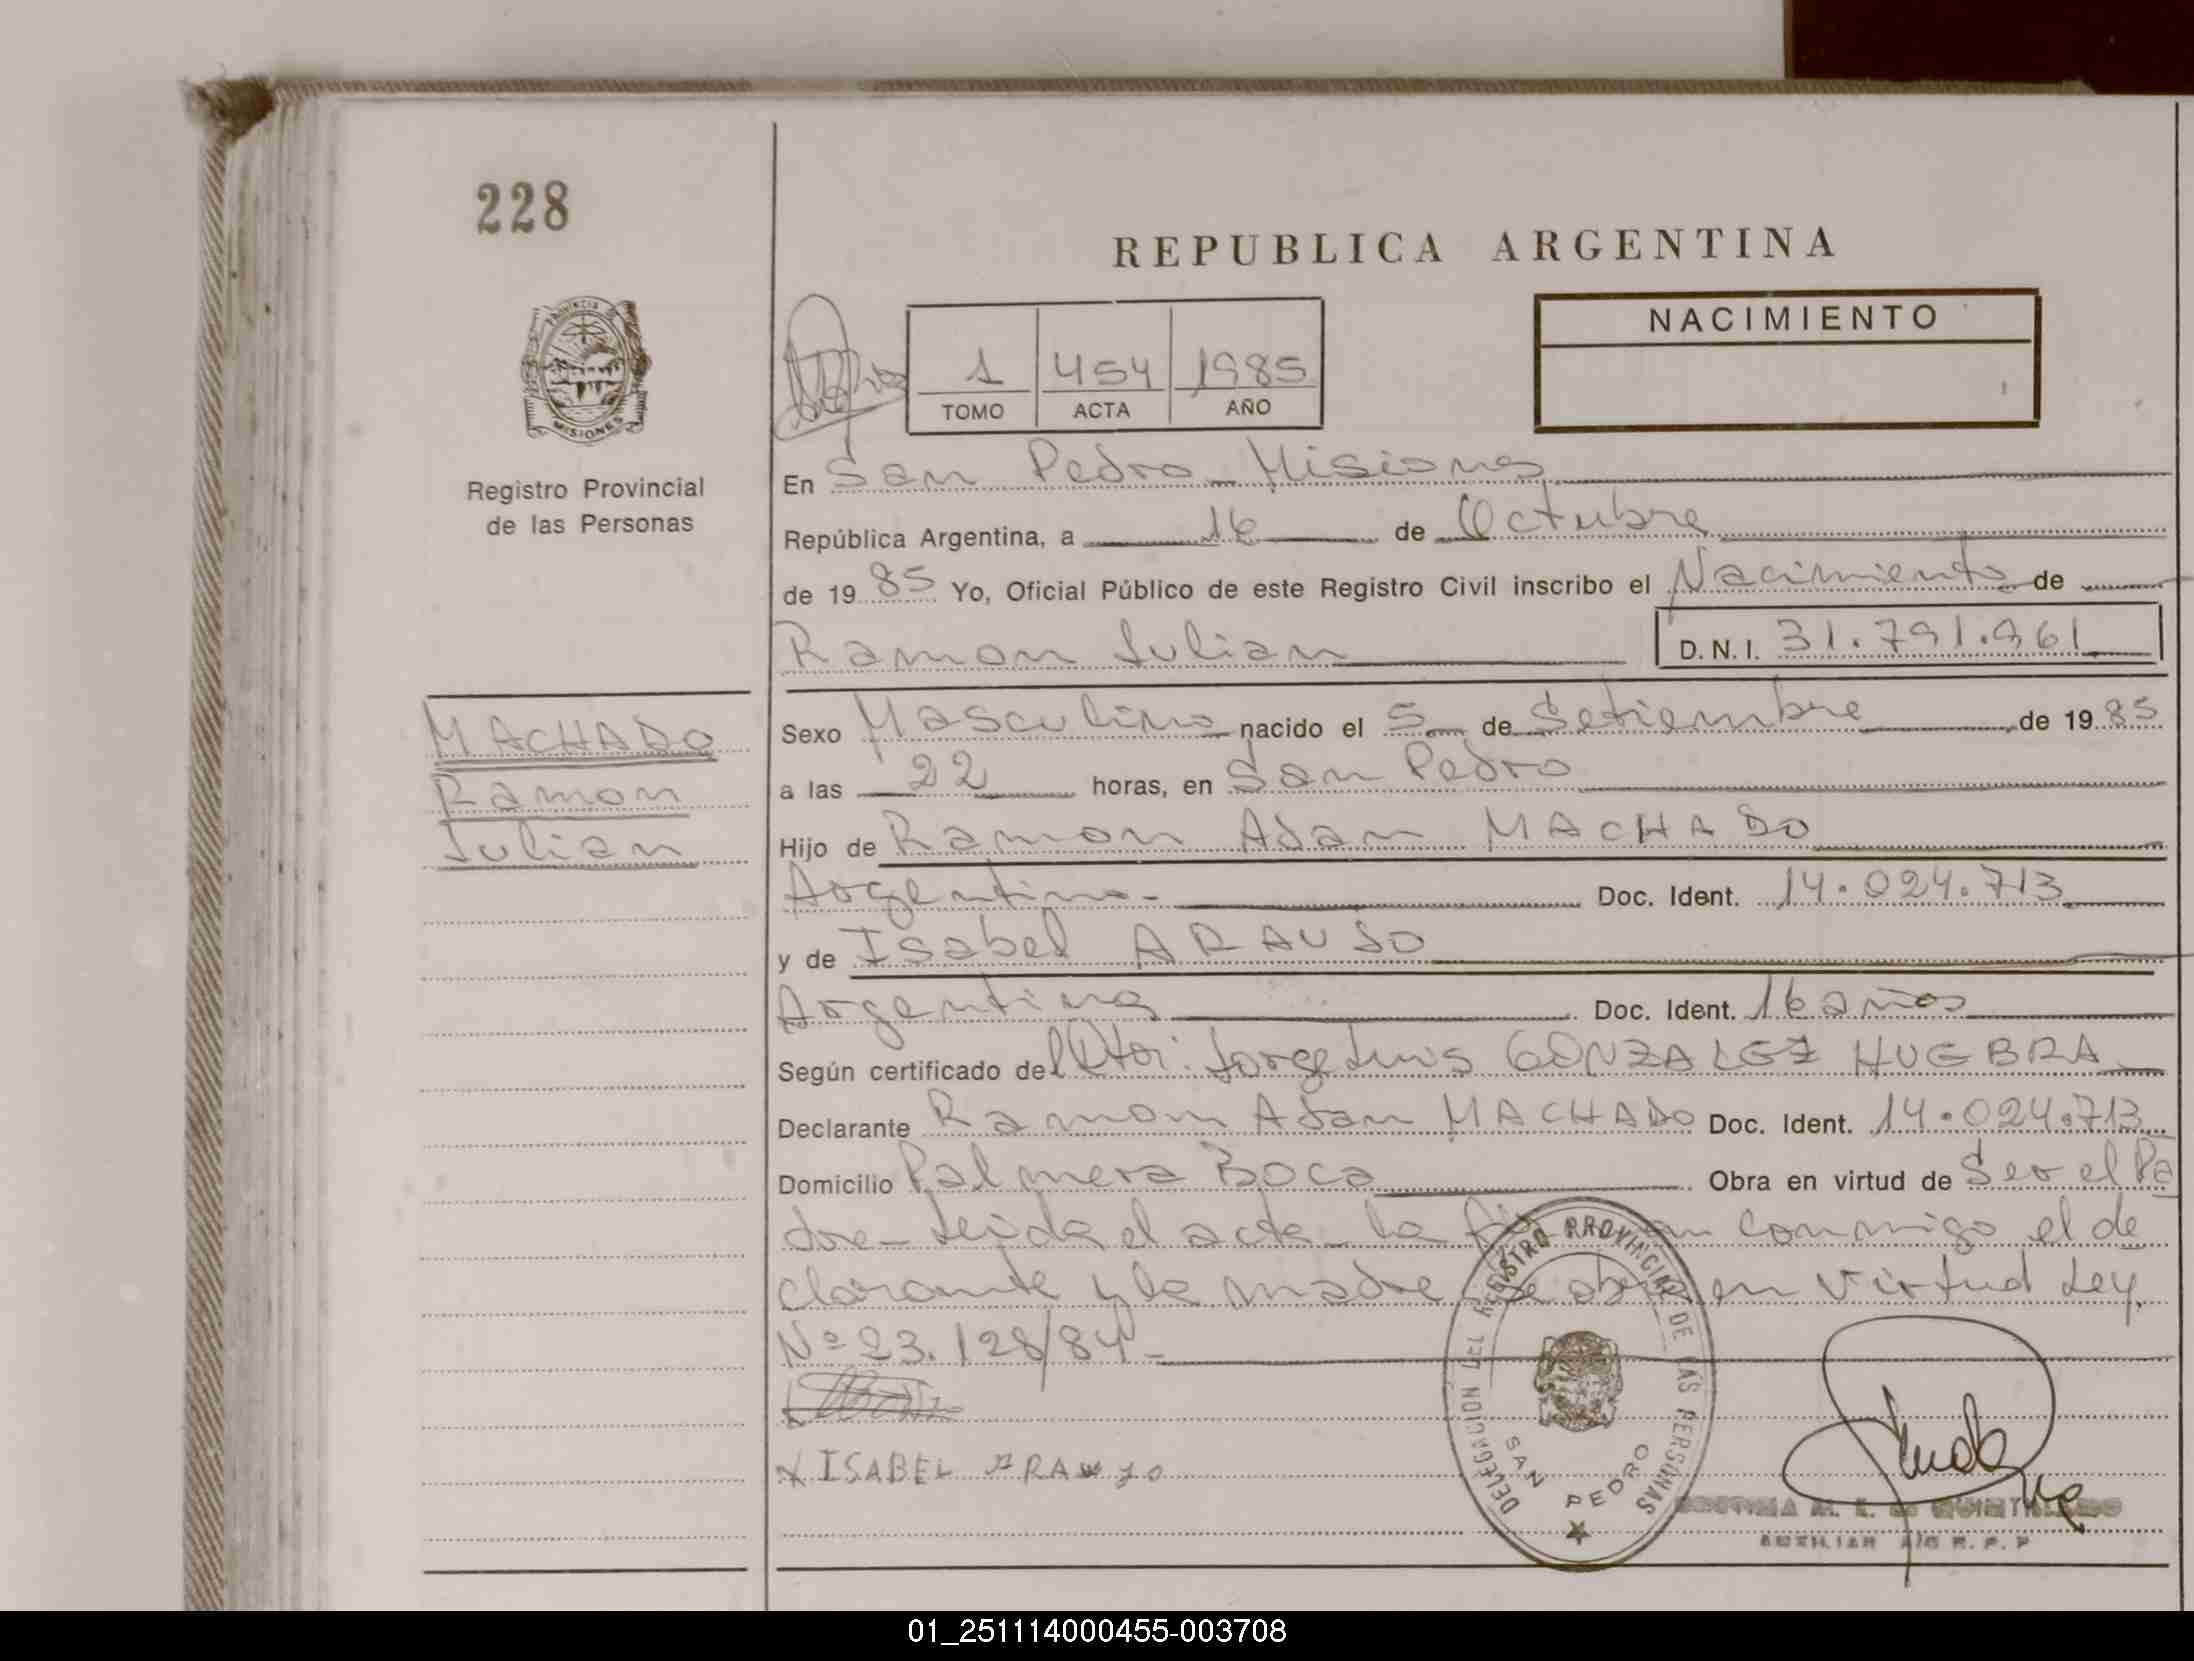 228
REPUBLICA ARGENTINA
NACIMIENTO
1 454 1985
TOMO ACTA AÑO
PROVINCIA DE
MISIONES
Registro Provincial
de las Personas
En San Pedro Misiones
República Argentina, a 16 de Octubre
de 1985 Yo, Oficial Público de este Registro Civil inscribo el Nacimiento de
Ramon Julian D.N.I. 31.791.961
MACHADO
Ramon
Julian
Sexo Masculino nacido el 5 de Setiembre de 1985
a las 22 horas, en San Pedro
Hijo de Ramon Adan MACHADO
Argentino- Doc. Ident. 14.024.713
y de Isabel ARAUJO
Argentina Doc. Ident. 16 años
Según certificado del Jorge Luis GONZALEZ HUEBRA
Declarante Ramon Adan MACHADO Doc. Ident. 14.024.713
Domicilio Palmera Boca Obra en virtud de Ser el Pa
dre- Leida el acta la firman conmigo el de
clarante y la madre se obra en virtud Ley
Nº 23.128/84-
X ISABEL ARAUJO
DELEGACION DEL REGISTRO PROVINCIAL DE LAS PERSONAS
SAN PEDRO
AUXILIAR A/C R.P.P
01_251114000455-003708